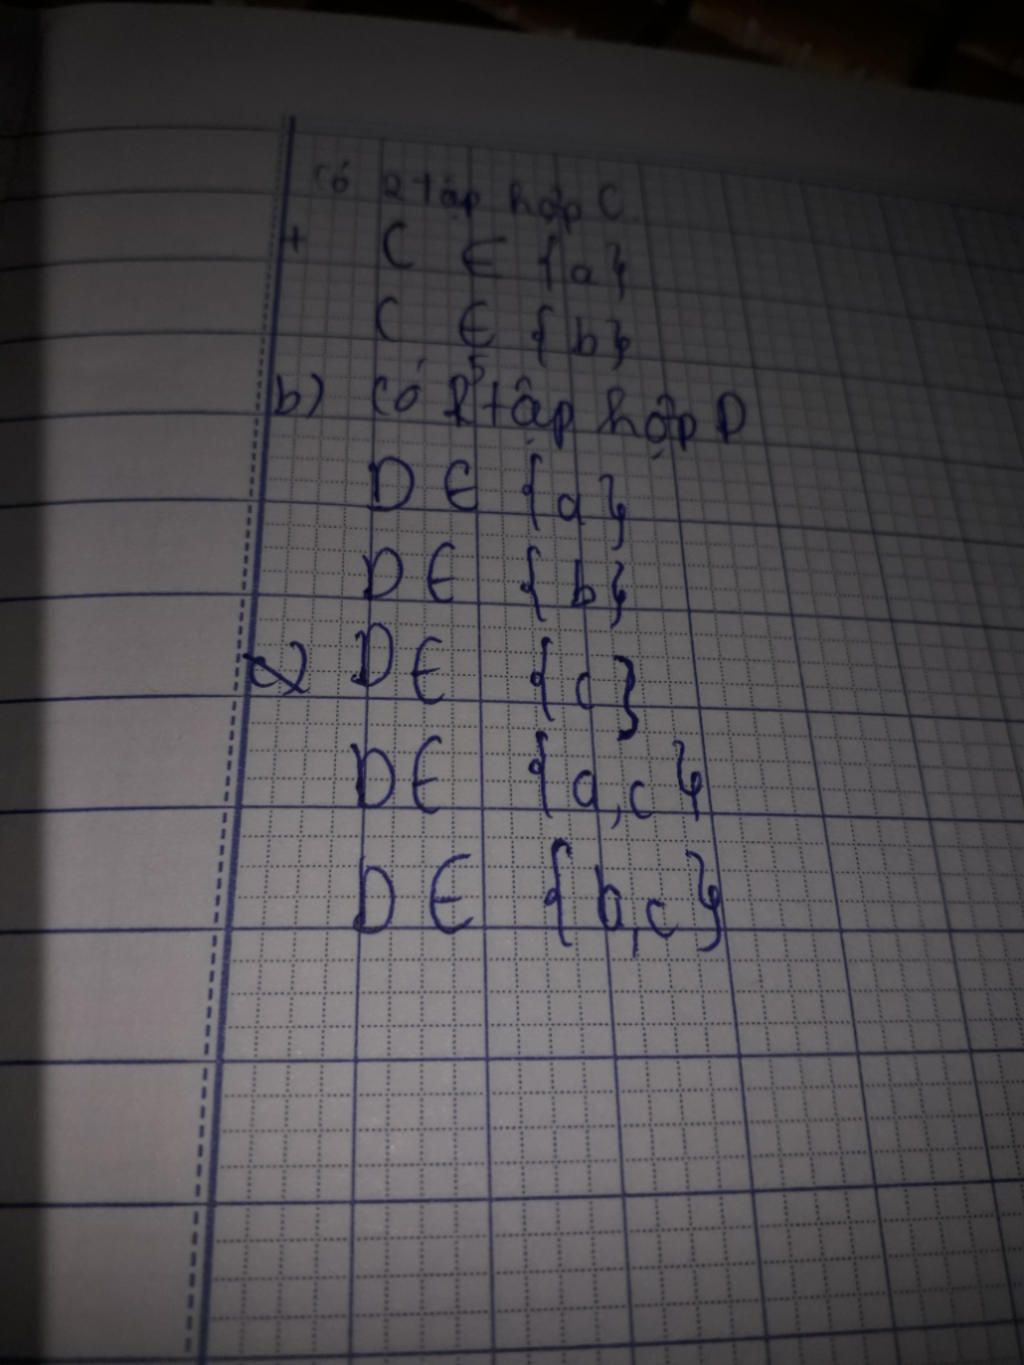 có 2 tập hợp C
+ C ∈ {a}
C ∈ {b}
b) có 5 tập hợp D
D ∈ {a}
D ∈ {b}
D ∈ {c}
D ∈ {a,c}
D ∈ {b,c}